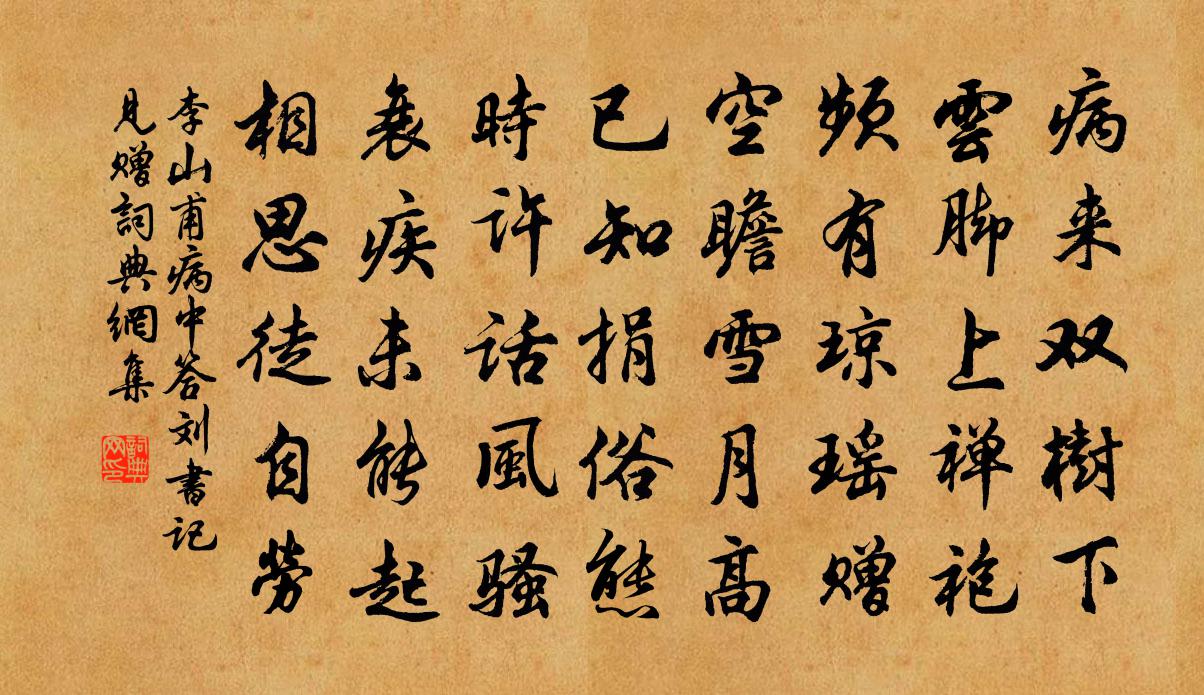 病来双樹下
雲脚上禅袍
頻有琼瑶赠
空瞻雪月高
已知捐俗態
時許话風騷
衰疾未能起
相思徒自勞
李山甫病中答刘書记
見赠詞典網集
詞典网印